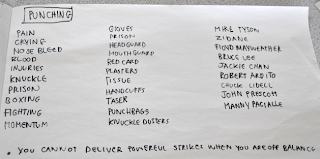 PUNCHING
PAIN
CRYING
NOSE BLEED
BLOOD
INJURIES
KNUCKLE
PRISON
BOXING
FIGHTING
MOMENTUM
GLOVES
PRISON
HEADGUARD
MOUTHGUARD
RED CARD
PLASTERS
TISSUE
HANDCUFFS
TASER
PUNCHBAGS
KNUCKLE DUSTERS
MIKE TYSON
ZIDANE
FLOYD MAYWEATHER
BRUCE LEE
JACKIE CHAN
ROBERT ARDITO
CHUCK LIDELL
JOHN PRESCOTT
MANNY
• YOU CANNOT DELIVER POWERFUL STRIKES WHEN YOU ARE OFF BALANCE